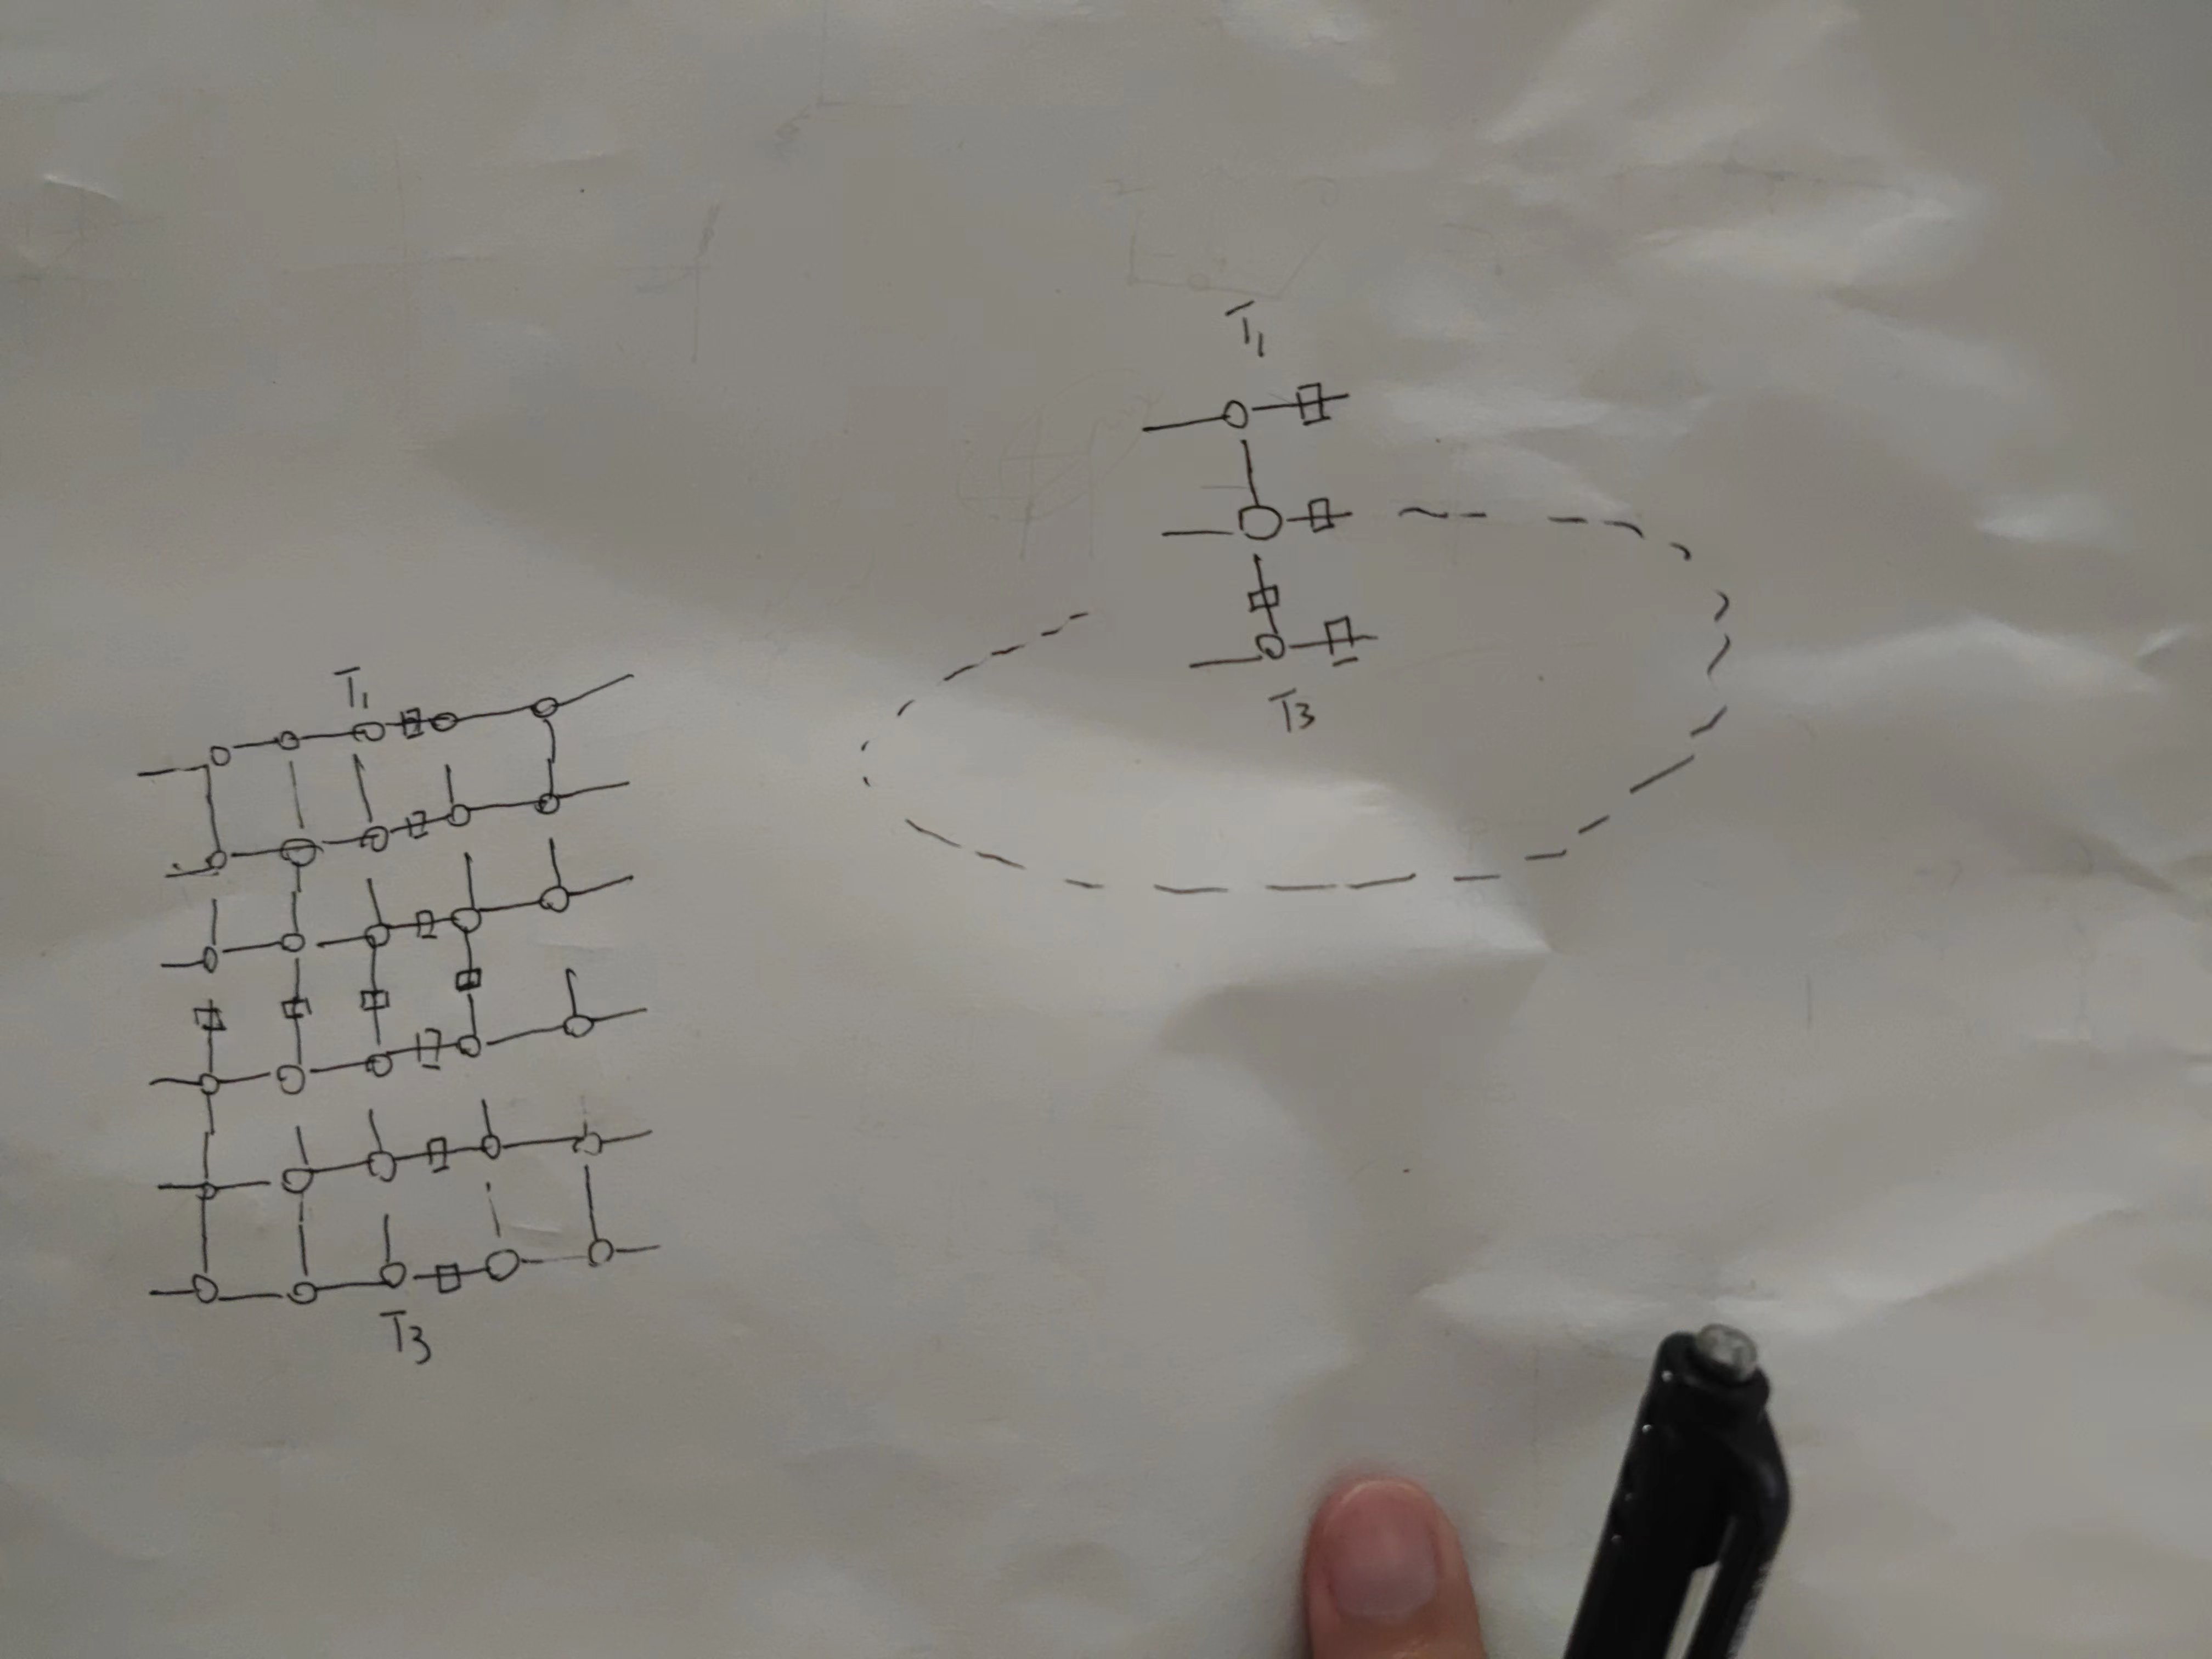 T1
T3
T1
T3